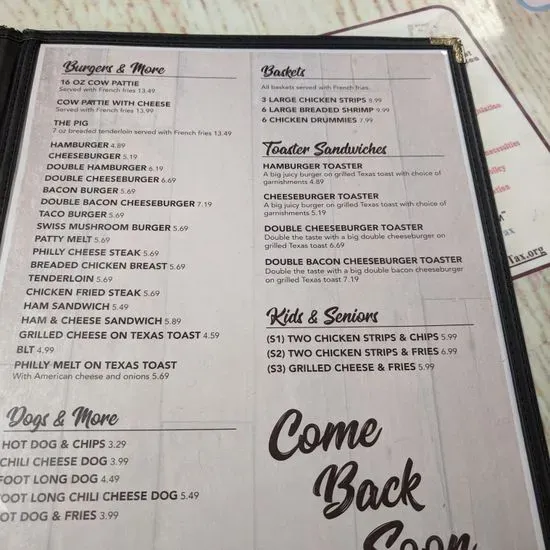 Burgers & More
16 OZ COW PATTIE
Served with French fries 13.49
COW PATTIE WITH CHEESE
Served with French fries 13.99
THE PIG
7 oz breaded tenderloin served with French fries 13.49
HAMBURGER 4.89
CHEESEBURGER 5.19
DOUBLE HAMBURGER 6.19
DOUBLE CHEESEBURGER 6.69
BACON BURGER 5.69
DOUBLE BACON CHEESEBURGER 7.19
TACO BURGER 5.69
SWISS MUSHROOM BURGER 5.69
PATTY MELT 5.69
PHILLY CHEESE STEAK 5.69
BREADED CHICKEN BREAST 5.69
TENDERLOIN 5.69
CHICKEN FRIED STEAK 5.69
HAM SANDWICH 5.49
HAM & CHEESE SANDWICH 5.89
GRILLED CHEESE ON TEXAS TOAST 4.59
BLT 4.99
PHILLY MELT ON TEXAS TOAST
With American cheese and onions 5.69
Dogs & More
HOT DOG & CHIPS 3.29
CHILI CHEESE DOG 3.99
FOOT LONG DOG 4.49
FOOT LONG CHILI CHEESE DOG 5.49
OT DOG & FRIES 3.99
Baskets
All baskets served with French fries.
3 LARGE CHICKEN STRIPS 8.99
6 LARGE BREADED SHRIMP 9.99
6 CHICKEN DRUMMIES 7.99
Toaster Sandwiches
HAMBURGER TOASTER
A big juicy burger on grilled Texas toast with choice of
garnishments 4.89
CHEESEBURGER TOASTER
A big juicy burger on grilled Texas toast with choice of
garnishments 5.19
DOUBLE CHEESEBURGER TOASTER
Double the taste with a big double cheeseburger on
grilled Texas toast 6.69
DOUBLE BACON CHEESEBURGER TOASTER
Double the taste with a big double bacon cheeseburger
on grilled Texas toast 7.19
Kids & Seniors
(S1) TWO CHICKEN STRIPS & CHIPS 5.99
(S2) TWO CHICKEN STRIPS & FRIES 6.99
(S3) GRILLED CHEESE & FRIES 5.99
Come
Back
Soon
Tax.org